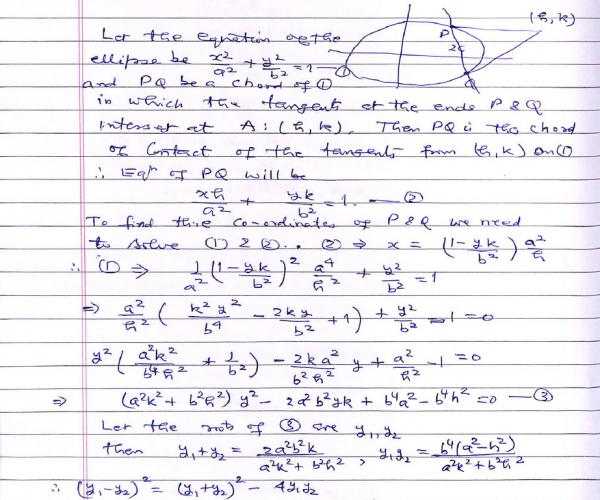 Let the equation of the
(h, k)
P
2c
ellipse be x²/a² + y²/b² = 1 — ①
Q
and PQ be a chord of ①
in which the tangents at the ends P & Q
intersect at A: (h, k). Then PQ is the chord
of contact of the tangents from (h, k) on (1)
∴ Eqⁿ of PQ will be
xh/a² + yk/b² = 1. — ②
To find the co-ordinates of P & Q we need
to solve (1) & (2). . ② ⇒ x = (1 - yk/b²) a²/h
∴ (1) ⇒ 1/a² (1 - yk/b²)² a⁴/h² + y²/b² = 1
⇒ a²/h² (k²y²/b⁴ - 2ky/b² + 1) + y²/b² - 1 = 0
y² (a²k²/b⁴h² + 1/b²) - 2ka²/b²h² y + a²/h² - 1 = 0
⇒ (a²k² + b²h²) y² - 2a²b²yk + b⁴a² - b⁴h² = 0 — ③
Let the roots of ③ are y₁, y₂
then y₁ + y₂ = 2a²b²k/a²k² + b²h² , y₁y₂ = b⁴(a² - h²)/a²k² + b²h²
∴ (y₁ - y₂)² = (y₁ + y₂)² - 4y₁y₂